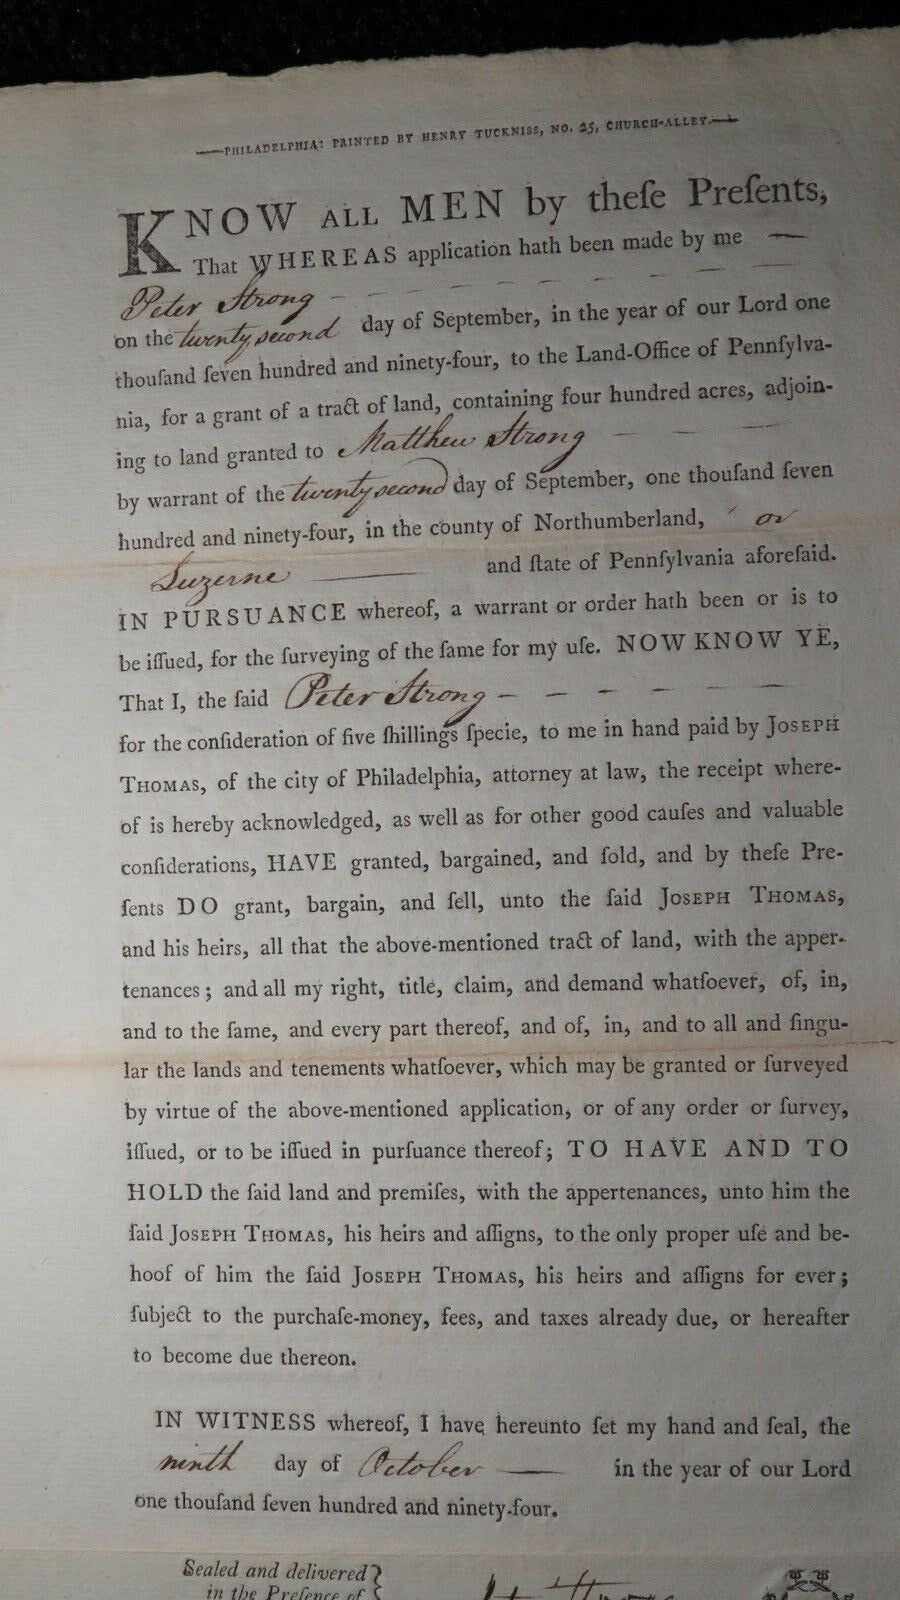 PHILADELPHIA: PRINTED BY HENRY TUCKNISS, NO. 25, CHURCH-ALLEY.
KNOW ALL MEN by theſe Preſents,
That WHEREAS application hath been made by me
Peter Strong
on the twenty second day of September, in the year of our Lord one
thouſand ſeven hundred and ninety-four, to the Land-Office of Pennſylva-
nia, for a grant of a tract of land, containing four hundred acres, adjoin-
ing to land granted to Matthew Strong
by warrant of the twenty second day of September, one thouſand ſeven
hundred and ninety-four, in the county of Northumberland, or
Luzerne and ſtate of Pennſylvania aforeſaid.
IN PURSUANCE whereof, a warrant or order hath been or is to
be iſſued, for the ſurveying of the ſame for my uſe. NOW KNOW YE,
That I, the ſaid Peter Strong
for the conſideration of five ſhillings ſpecie, to me in hand paid by JOSEPH
THOMAS, of the city of Philadelphia, attorney at law, the receipt where-
of is hereby acknowledged, as well as for other good cauſes and valuable
conſiderations, HAVE granted, bargained, and ſold, and by theſe Pre-
ſents DO grant, bargain, and ſell, unto the ſaid JOSEPH THOMAS,
and his heirs, all that the above-mentioned tract of land, with the apper-
tenances; and all my right, title, claim, and demand whatſoever, of, in,
and to the ſame, and every part thereof, and of, in, and to all and ſingu-
lar the lands and tenements whatſoever, which may be granted or ſurveyed
by virtue of the above-mentioned application, or of any order or ſurvey,
iſſued, or to be iſſued in purſuance thereof; TO HAVE AND TO
HOLD the ſaid land and premiſes, with the appertenances, unto him the
ſaid JOSEPH THOMAS, his heirs and aſſigns, to the only proper uſe and be-
hoof of him the ſaid JOSEPH THOMAS, his heirs and aſſigns for ever;
ſubject to the purchaſe-money, fees, and taxes already due, or hereafter
to become due thereon.
IN WITNESS whereof, I have hereunto ſet my hand and ſeal, the
ninth day of October in the year of our Lord
one thouſand ſeven hundred and ninety-four.
Sealed and delivered
in the Preſence of